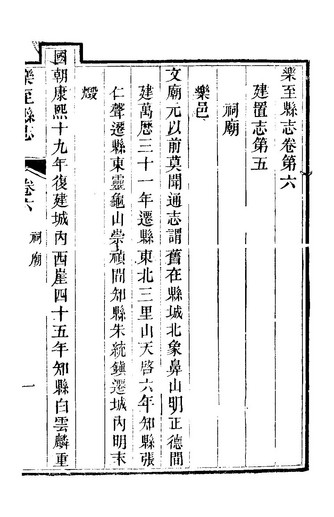 樂至縣志卷第六
建置志第五
祠廟
樂邑
文廟元以前莫聞通志謂舊在縣城北象鼻山明正德間
建萬曆三十一年遷縣東北三里山天啓六年知縣張
仁聲遷縣東靈龜山崇禎間知縣朱統鎮遷城內明末
燬
國朝康熙十九年復建城內西崖四十五年知縣白雲麟重
樂至縣志
卷六
祠廟
一